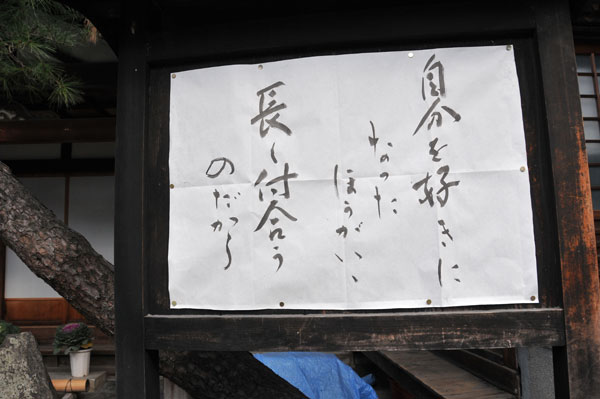 自分を好きに
なった
ほうがいい
長く付合う
のだから